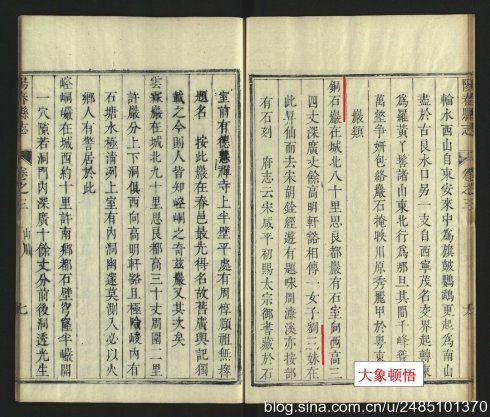 陽春縣志
卷之三
輪水西山自東安來中為旗皷鸚鵡更起為南山
盡於古良水口另一支自西寧茂名交界起轉東
為羅黃丫薯諸山東北行為那旦其間千峰
包絡巖石掩映川原秀麗甲於粵東
巖類
銅石巖在城北八十里思良都巖有石室向西高三
四丈深廣丈餘高明軒豁相傳一女子劉三妹在
此昇仙而去宋胡銓經遊有題味周濂溪亦按部
有石刻 府志云宋咸平初賜太宗御書藏於石
室前有德慧禪寺上半壁平處有周惇頤祖無擇
題名 按此巖在春邑最先得名故舊廣輿記獨
載之今則人皆知崆峒之奇茲巖又其次矣
雲霖巖在城北九十里思良都高三十丈周圍二里
許巖分上下洞俱西向高明軒豁且極險峻內有
石塘水極清冽上室有內洞幽邃莫測入必以火
鄉人有警居於此
崆峒巖在城西約十里許南鄉都石壁穹窿半巖開
一穴隙若洞門內深廣十餘丈分前後洞透光生
陽春縣志
卷之三
山川
七
大象顿悟
blog.sina.com.cn/u/2485101370